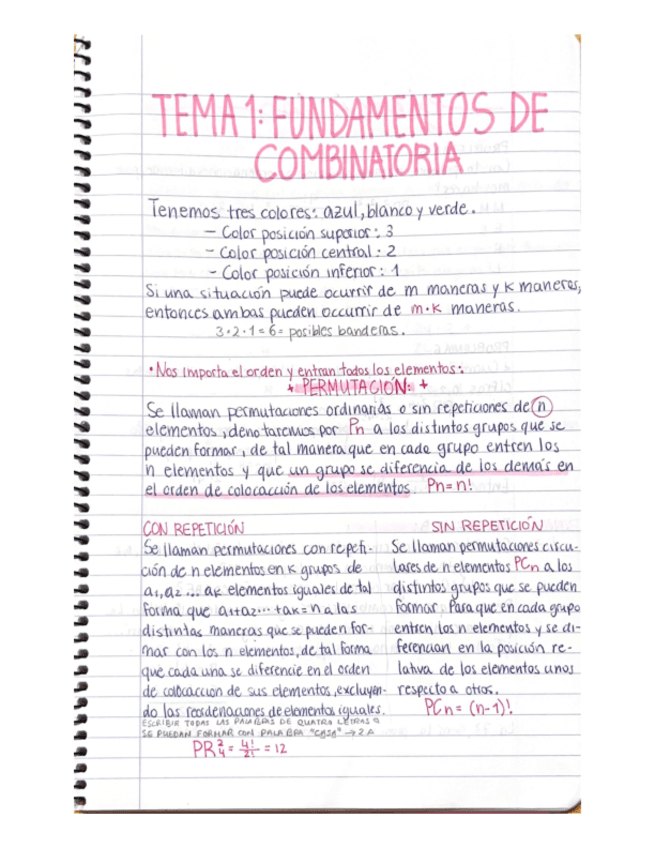 TEMA 1: FUNDAMENTOS DE
COMBINATORIA
Tenemos tres colores: azul, blanco y verde.
- Color posición superior: 3
- Color posición central: 2
- Color posición inferior: 1
Si una situación puede ocurrir de m maneras y k maneras,
entonces ambas pueden occurrir de m·k maneras.
3·2·1=6= posibles banderas.
• Nos importa el orden y entran todos los elementos:
+ PERMUTACIÓN: +
Se llaman permutaciones ordinarias o sin repeticiones de n
elementos, denotaremos por Pn a los distintos grupos que se
pueden formar, de tal manera que en cada grupo entren los
n elementos y que un grupo se diferencia de los demás en
el orden de colocacción de los elementos. Pn=n!
CON REPETICIÓN
Se llaman permutaciones con repeti-
ción de n elementos en k grupos de
a1, a2 ... ak elementos iguales de tal
forma que a1+a2...+ak=n a las
distintas maneras que se pueden for-
mar con los n elementos, de tal forma
que cada una se diferencie en el orden
de colocaccion de sus elementos, excluyen-
do las reordenaciones de elementos iguales.
ESCRIBIR TODAS LAS PALABRAS DE QUATRA LETRAS Q
SE PUEDAN FORMAR CON PALABRA "CASA" → 2A
PR²₄ = 4!/2! = 12
SIN REPETICIÓN
Se llaman permutaciones circu-
lares de n elementos PCn a los
distintos grupos que se pueden
formar. Para que en cada grupo
entren los n elementos y se di-
ferencian en la posición re-
lativa de los elementos unos
respecto a otros.
PCn = (n-1)!